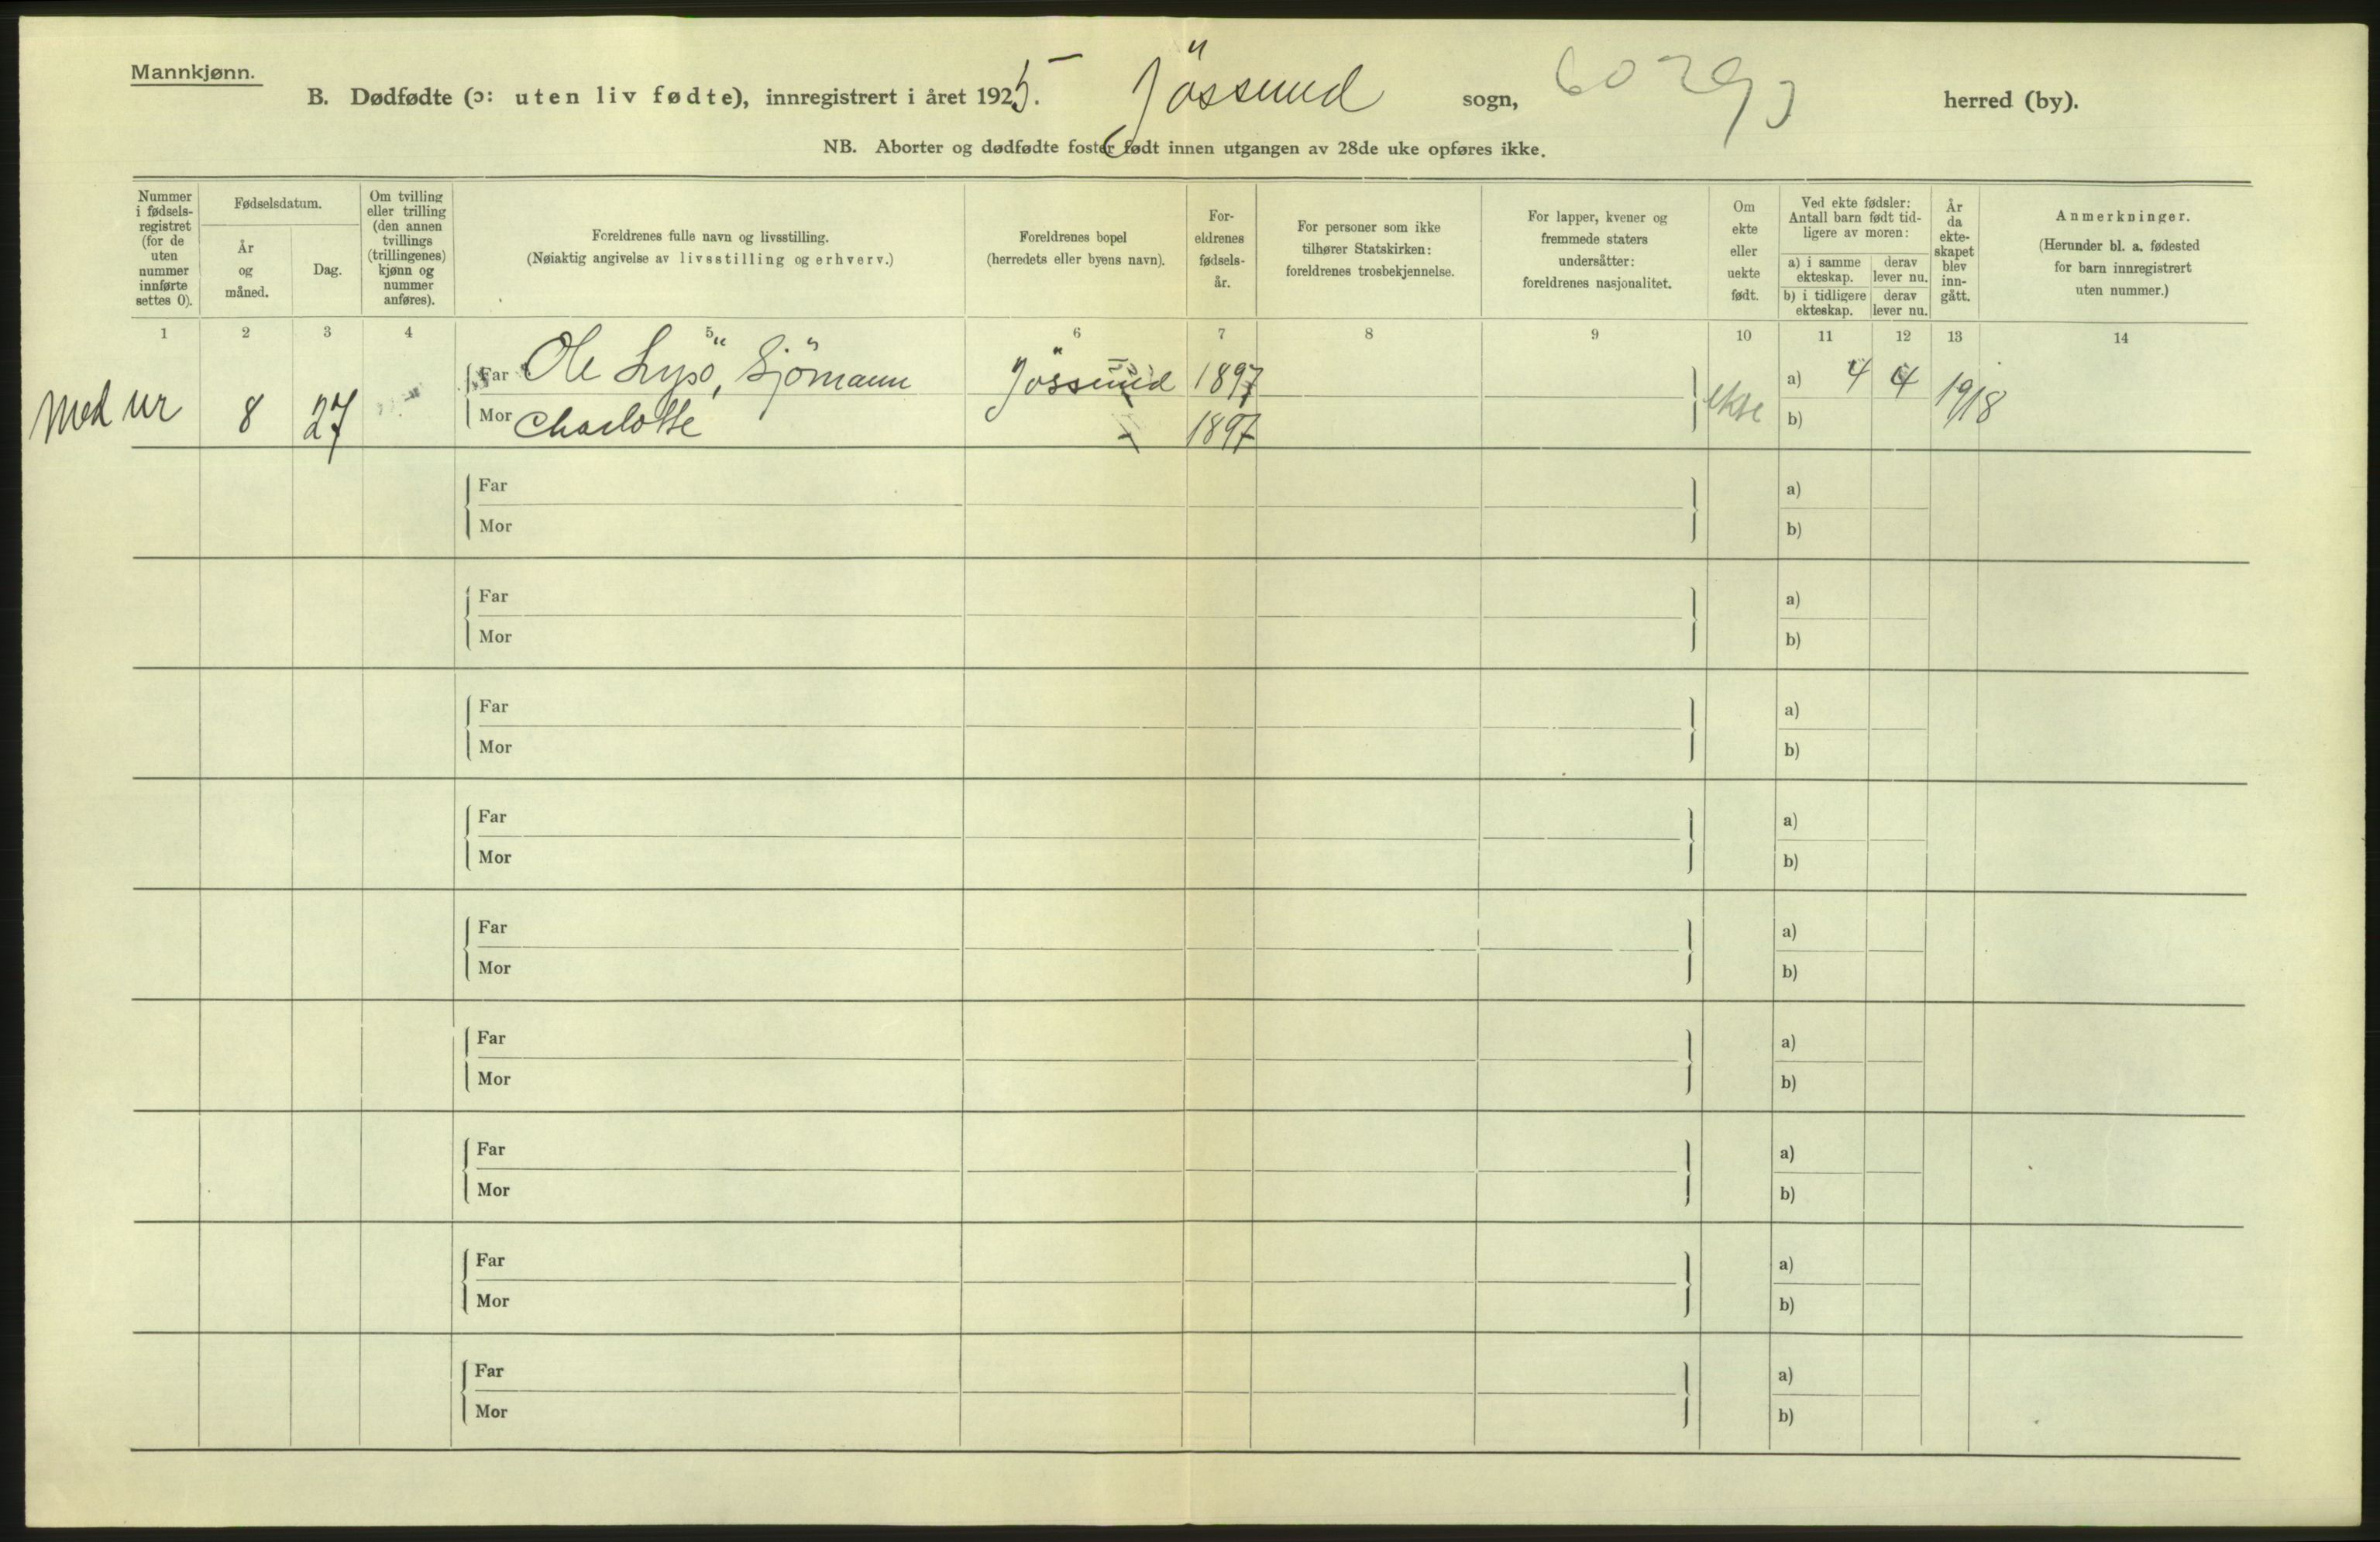 Mannkjønn.
B. Dødfødte (ɔ: uten liv fødte), innregistrert i året 1925. Jössund sogn, herred (by).
NB. Aborter og dødfødte foster født innen utgangen av 28de uke opføres ikke.
Nummer i fødsels-registret (for de uten nummer innførte settes 0).
Fødselsdatum.
År og måned.
Dag.
Om tvilling eller trilling (den annen tvillings (trillingenes) kjønn og nummer anføres).
Foreldrenes fulle navn og livsstilling.
(Nøiaktig angivelse av livsstilling og erhverv.)
Foreldrenes bopel
(herredets eller byens navn).
For-eldrenes fødsels-år.
For personer som ikke tilhører Statskirken: foreldrenes trosbekjennelse.
For lapper, kvener og fremmede staters undersåtter: foreldrenes nasjonalitet.
Om ekte eller uekte født.
Ved ekte fødsler: Antall barn født tid-ligere av moren:
a) i samme ekteskap.
derav lever nu.
b) i tidligere ekteskap.
derav lever nu.
År da ekte-skapet blev inn-gått.
Anmerkninger.
(Herunder bl. a. fødested for barn innregistrert uten nummer.)
1 2 3 4 5 6 7 8 9 10 11 12 13 14
Far Ole Lysö, Sjömann Jössund 1897 a) 4 4
8 27 ekte 1918
Mor Charlotte 1897 b)
Far a)
Mor b)
Far a)
Mor b)
Far a)
Mor b)
Far a)
Mor b)
Far a)
Mor b)
Far a)
Mor b)
Far a)
Mor b)
Far a)
Mor b)
Far a)
Mor b)